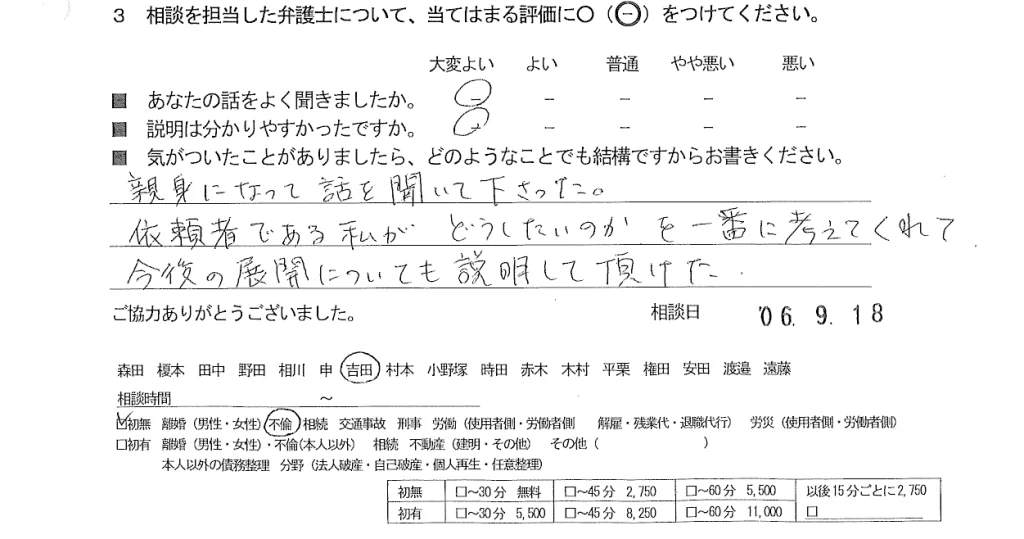 3 相談を担当した弁護士について、当てはまる評価に○(㊀)をつけてください。
大変よい よい 普通 やや悪い 悪い
■ あなたの話をよく聞きましたか。 － － － － －
■ 説明は分かりやすかったですか。 － － － － －
■ 気がついたことがありましたら、どのようなことでも結構ですからお書きください。
親身になって話を聞いて下さった。
依頼者である私がどうしたいのかを一番に考えてくれて
今後の展開についても説明して頂けた.
ご協力ありがとうございました。 相談日 '06. 9. 18
森田 榎本 田中 野田 相川 申 吉田 村本 小野塚 時田 赤木 木村 平栗 権田 安田 渡邉 遠藤
相談時間 ～
☑初無 離婚(男性・女性) 不倫 相続 交通事故 刑事 労働(使用者側・労働者側 解雇・残業代・退職代行) 労災(使用者側・労働者側)
□初有 離婚(男性・女性)・不倫(本人以外) 相続 不動産(建明・その他) その他( )
本人以外の債務整理 分野(法人破産・自己破産・個人再生・任意整理)
初無 □～30分 無料 □～45分 2,750 □～60分 5,500 以後15分ごとに2,750
初有 □～30分 5,500 □～45分 8,250 □～60分 11,000 □